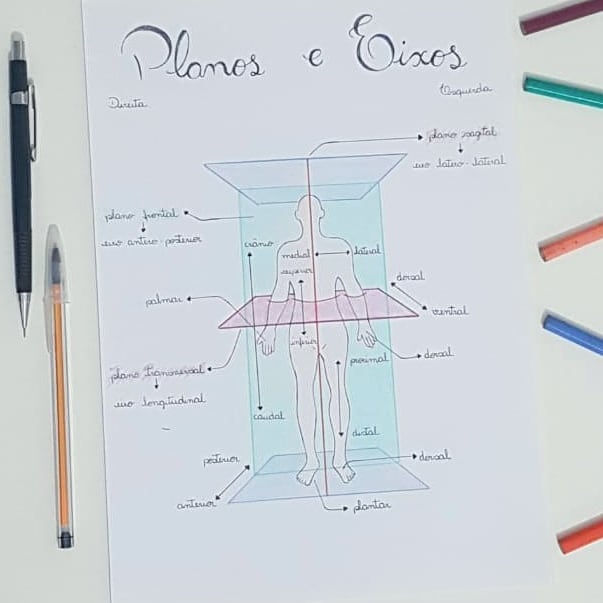 Planos e Eixos
Direita
Esquerda
plano sagital
eixo latero-lateral
plano frontal
eixo antero-posterior
crânio
medial
lateral
superior
dorsal
ventral
palmar
inferior
dorsal
proximal
plano transversal
eixo longitudinal
caudal
distal
posterior
dorsal
anterior
plantar